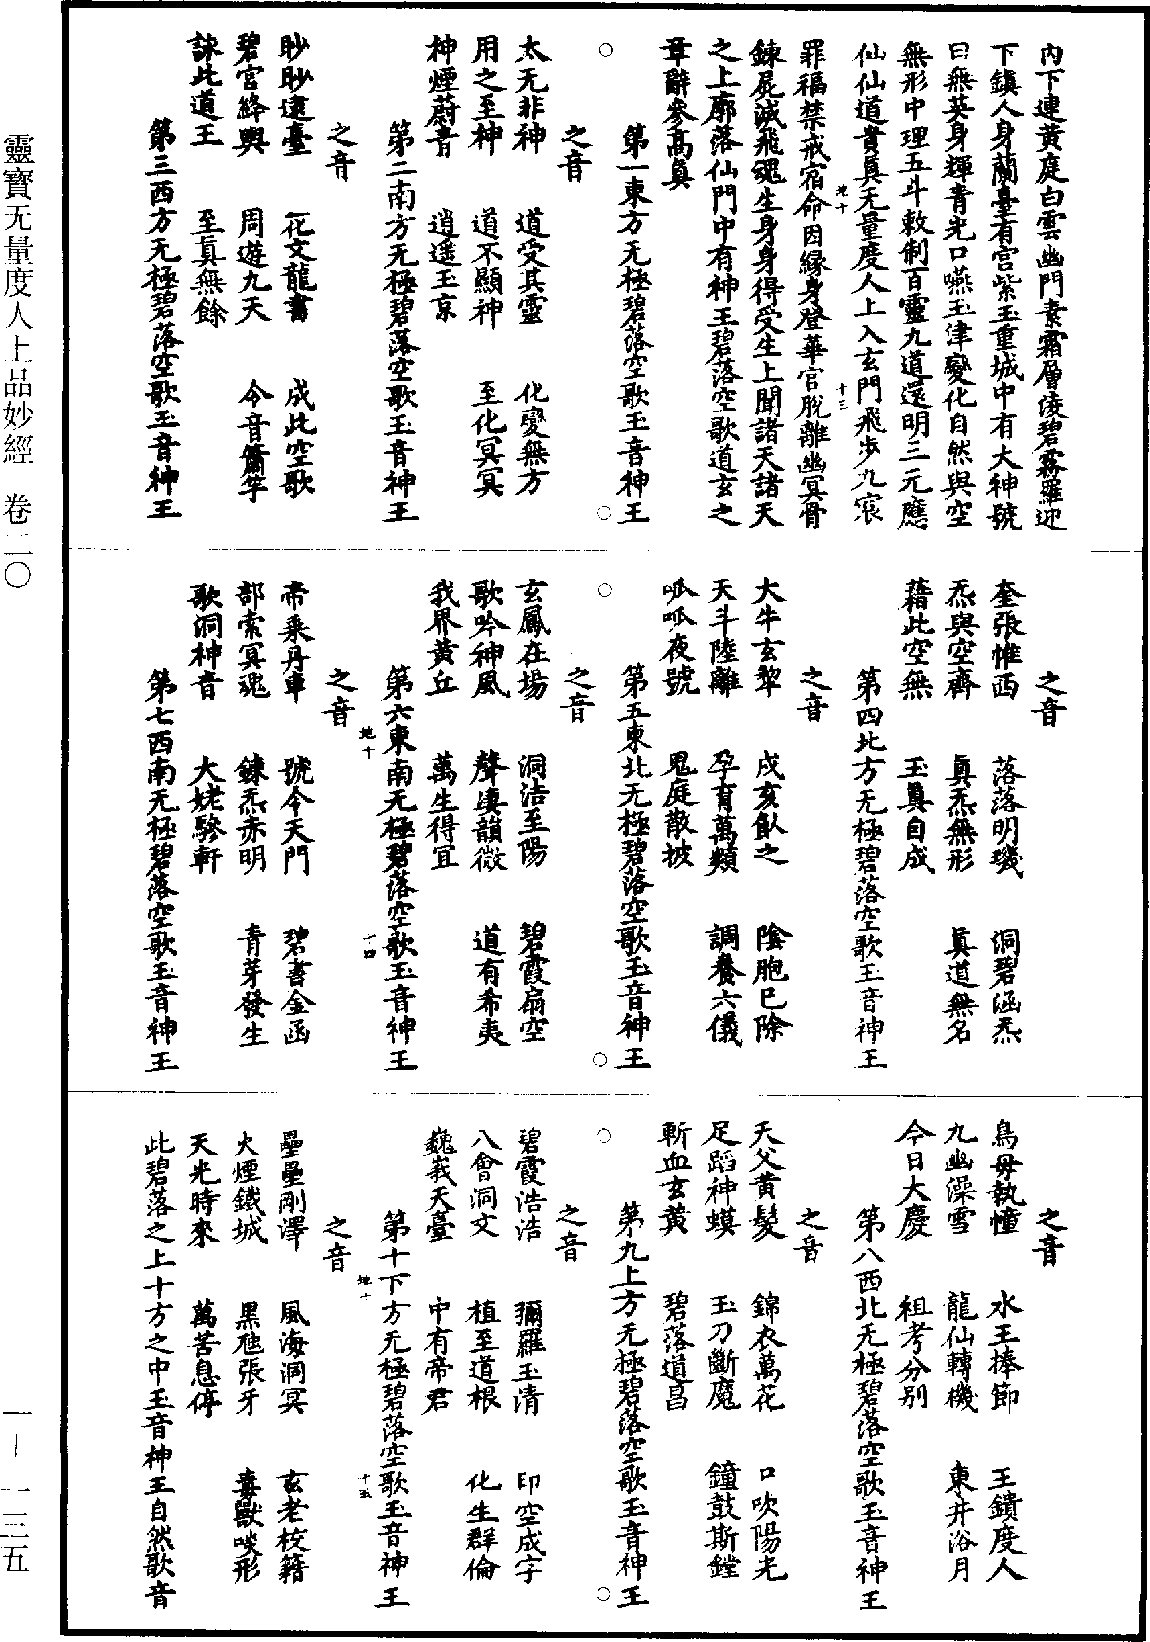 内下連黃庭白雲幽門素霜層淩碧霧羅迎
下鎮人身蘭臺有宫紫玉重城中有大神號
曰無英身輝青光口嚥玉津變化自然與空
無形中理五斗敕制百靈九道還明三元應
仙仙道貴真无量度人上入玄門飛步九宸
罪福禁戒宿命因緣身登華宫脫離幽冥骨
鍊屍滅飛魂生身身得受生上聞諸天諸天
之上廓落仙門中有神王碧落空歌道玄之
章辭參高真
第一東方无極碧落空歌玉音神王
之音
太无非神 道受其靈 化變無方
用之至神 道不顯神 至化冥冥
神煙蔚青 逍遥玉京
第二南方无極碧落空歌玉音神王
之音
眇眇遠臺 花文龍書 成此空歌
碧宫絳輿 周遊九天 今音簫竽
誄此道王 至真無餘
第三西方无極碧落空歌玉音神王
之音
奎張惟西 落落明璣 洞碧涵炁
炁與空齊 真炁無形 真道無名
藉此空無 玉真自成
第四北方无極碧落空歌玉音神王
之音
大牛玄犂 戌亥臥之 陰胞已除
天斗陸離 孕育萬類 調養六儀
呱呱夜號 鬼庭散披
第五東北无極碧落空歌玉音神王
之音
玄鳳在場 洞洁至陽 碧霞扇空
歌吟神風 聲凄韻微 道有希夷
我界黃丘 萬生得宜
第六東南无極碧落空歌玉音神王
之音
帝乘丹車 號令天門 碧書金函
部索冥魂 鍊炁赤明 青芽發生
歌洞神音 大姥驂軒
第七西南无極碧落空歌玉音神王
之音
烏母執幢 水王捧節 王鑽度人
九幽澡雪 龍仙轉機 東井浴月
今日大慶 祖考分别
第八西北无極碧落空歌玉音神王
之音
天父黃髮 錦衣萬花 口吹陽光
足蹈神蟆 玉刀斷魔 鐘鼓斯鏜
斬血玄黃 碧落道昌
第九上方无極碧落空歌玉音神王
之音
碧霞浩浩 彌羅玉清 印空成字
八會洞文 植至道根 化生群倫
巍峩天臺 中有帝君
第十下方无極碧落空歌玉音神王
之音
壘壘剛澤 風海洞冥 玄老校籍
火煙鐵城 黑虺張牙 毒獸啖形
天光時來 萬苦息停
此碧落之上十方之中玉音神王自然歌音
靈寶无量度人上品妙經 卷二〇
一—一三五
地十
十三
地十
十四
地十
十五